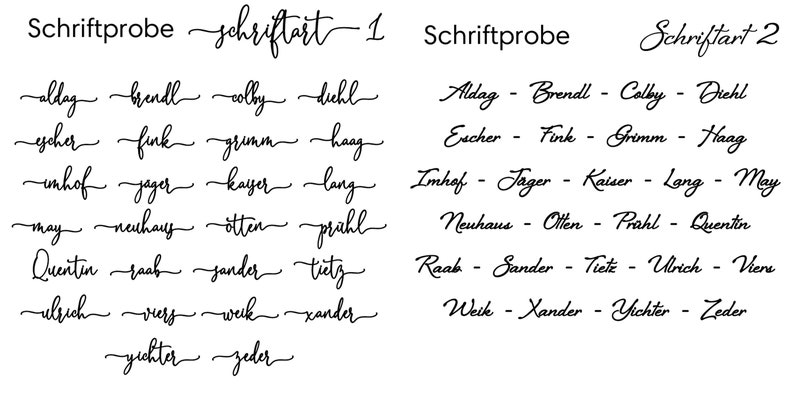 Schriftprobe schriftart 1
aldag brendl colby diehl
escher fink grimm haag
imhof jager kayser lang
may neuhaus otten prühl
Quentin raab sander tietz
ulrich viers weik xander
yichter zeder
Schriftprobe Schriftart 2
Aldag - Brendl - Colby - Diehl
Escher - Fink - Grimm - Haag
Imhof - Jäger - Kaiser - Lang - May
Neuhaus - Otten - Prühl - Quentin
Raab - Sander - Tietz - Ulrich - Viers
Weik - Xander - Yichter - Zeder